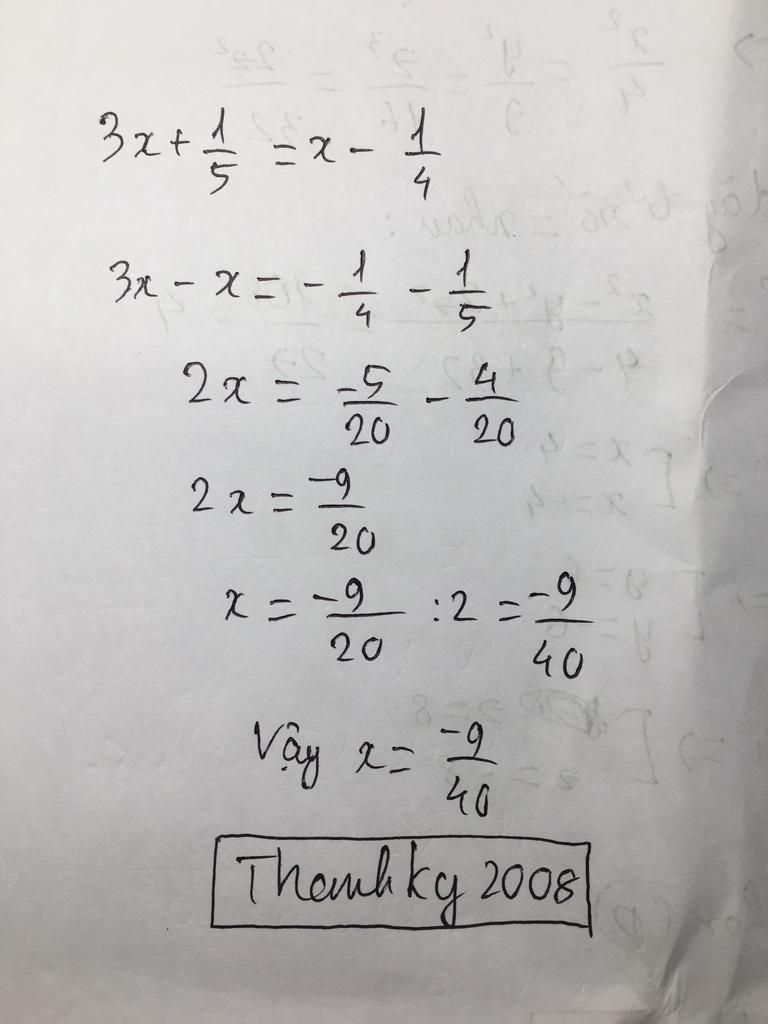 3x + 1/5 = x - 1/4
3x - x = - 1/4 - 1/5
2x = -5/20 - 4/20
2x = -9/20
x = -9/20 : 2 = -9/40
Vậy x = -9/40
Thanhkg 2008